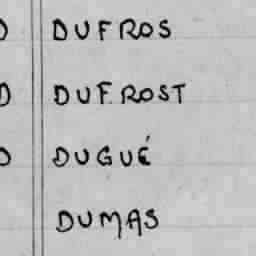 DUFROS
DUFROST
DUGUÉ
DUMAS